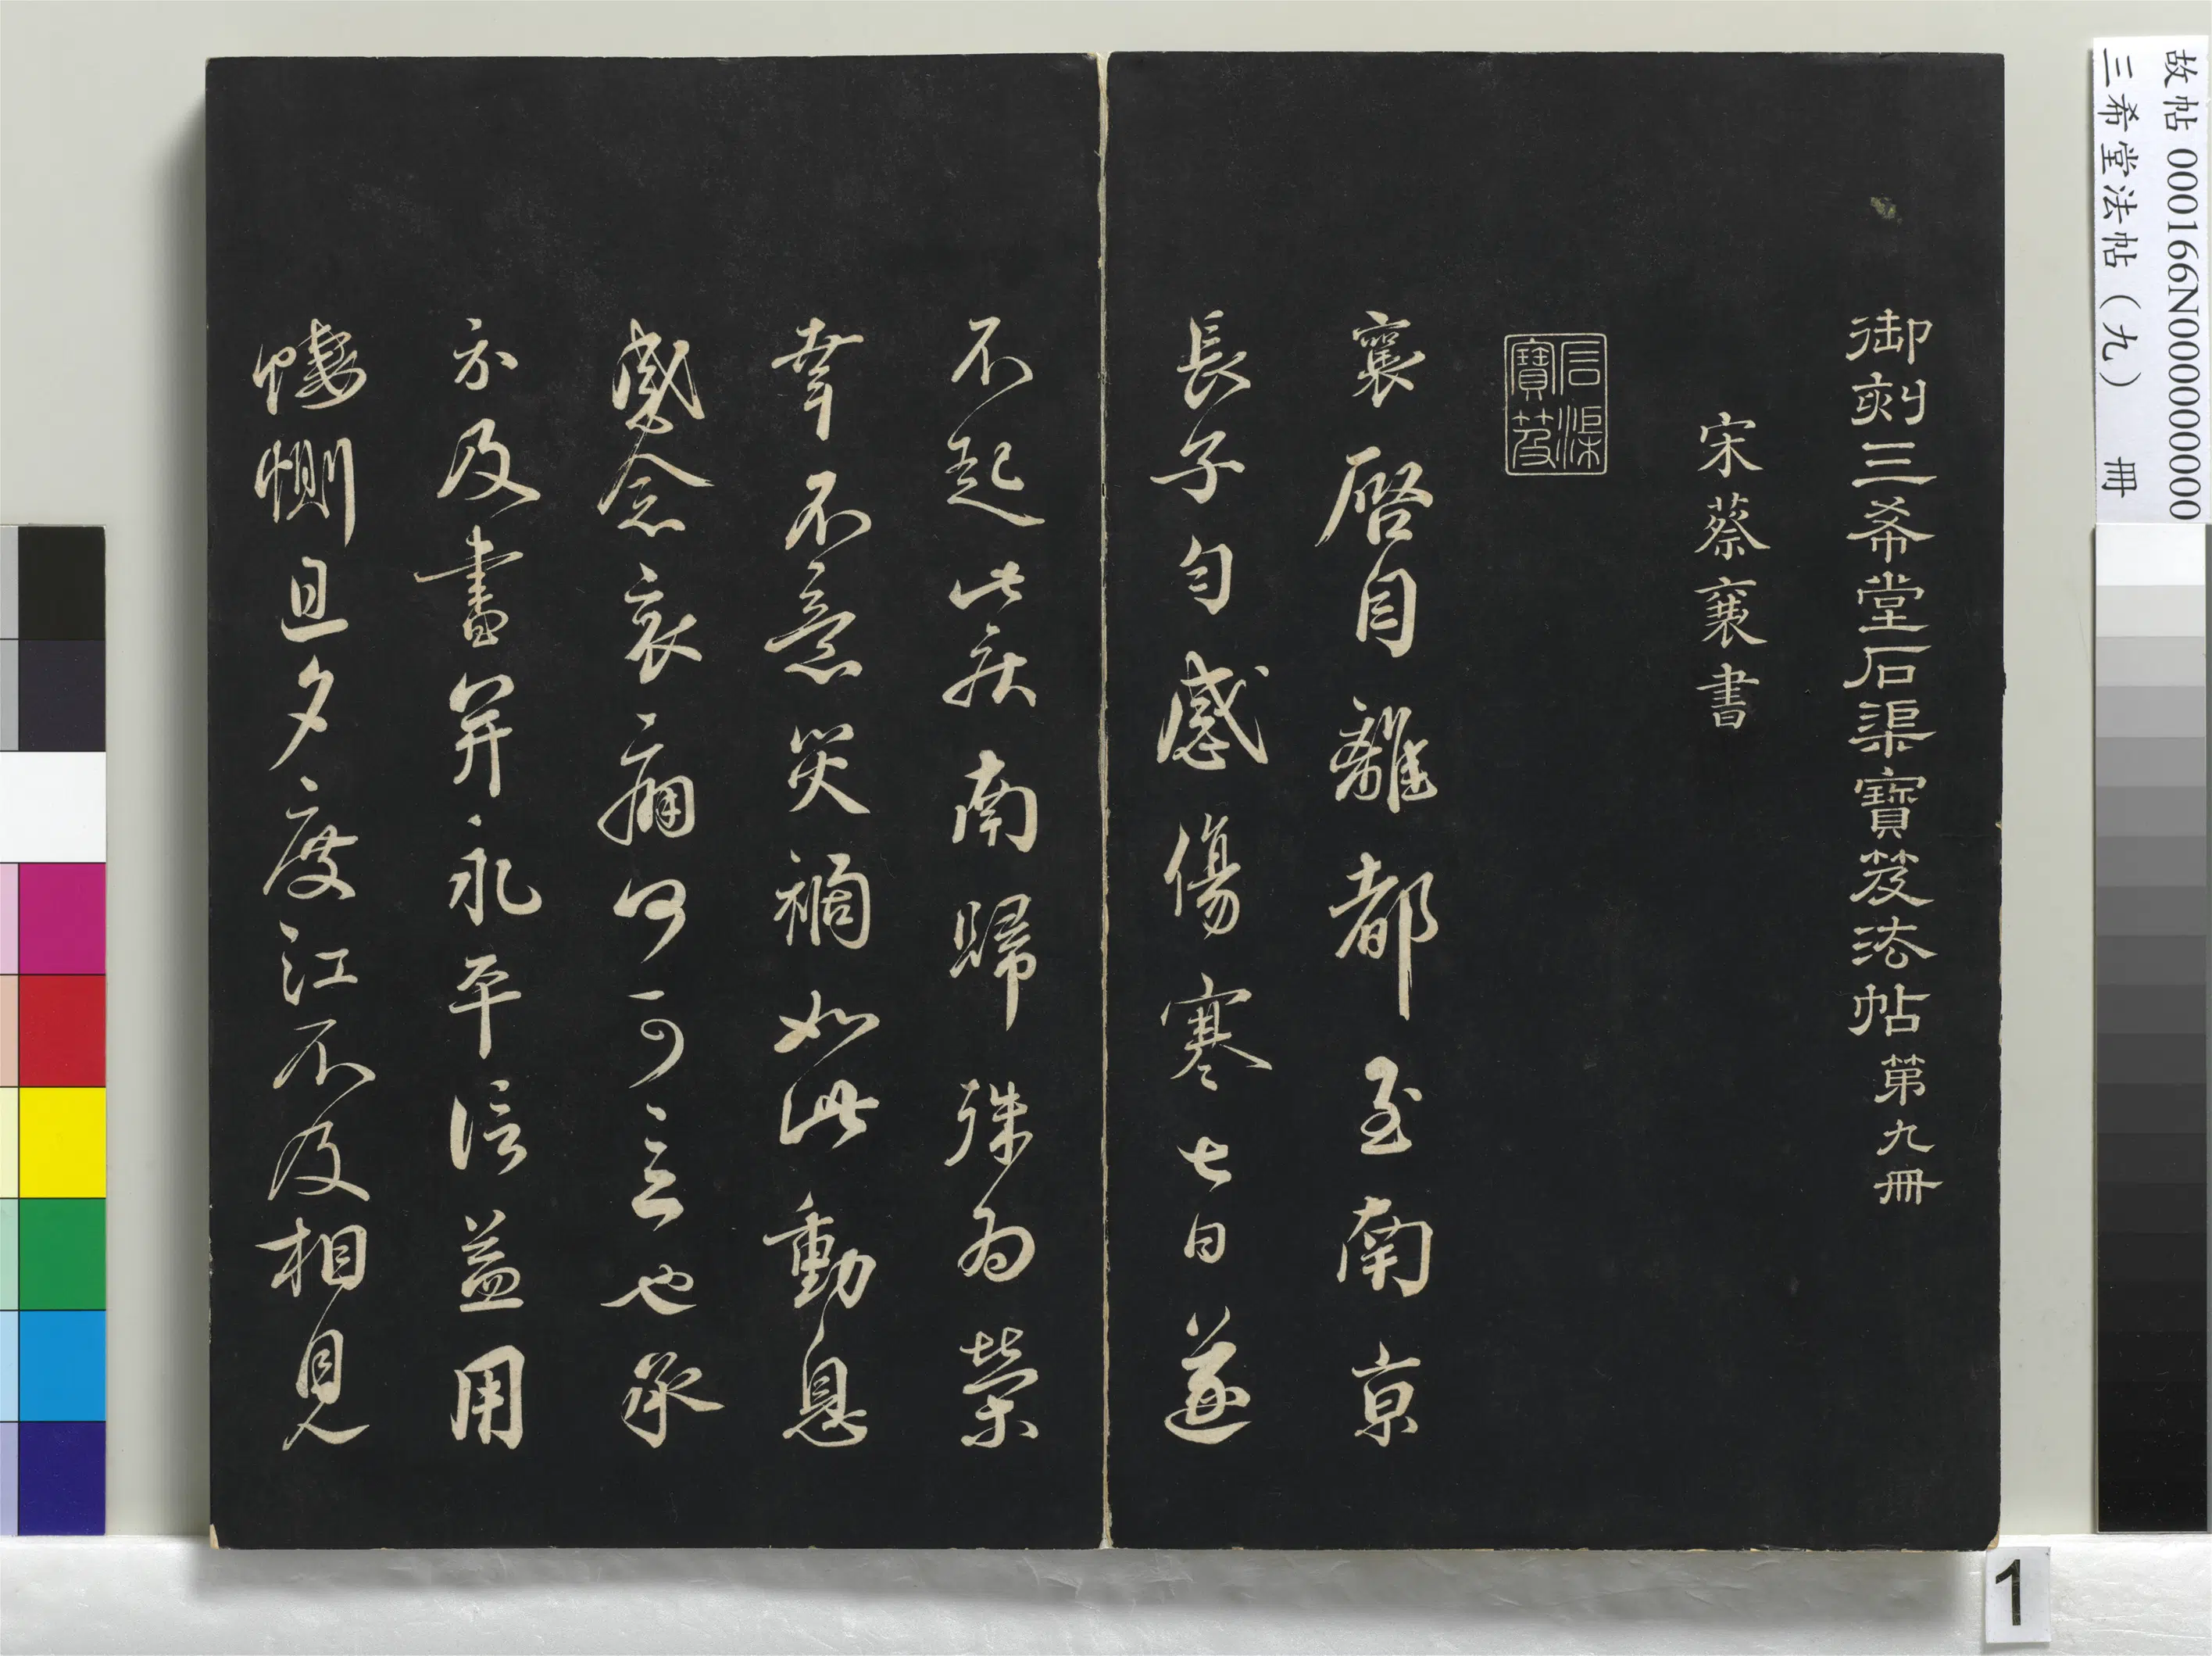 御刻三希堂石渠寶笈法帖第九冊
宋蔡襄書
石渠寶笈
襄啓自離都至南京
長子勻感傷寒七日遂
不起此疾南歸殊為榮
幸不意災禍如此動息
感念哀痛何可言也承
示及書并永平信益用
悽惻旦夕度江不及相見
故帖 000166N000000000
三希堂法帖（九） 冊
1